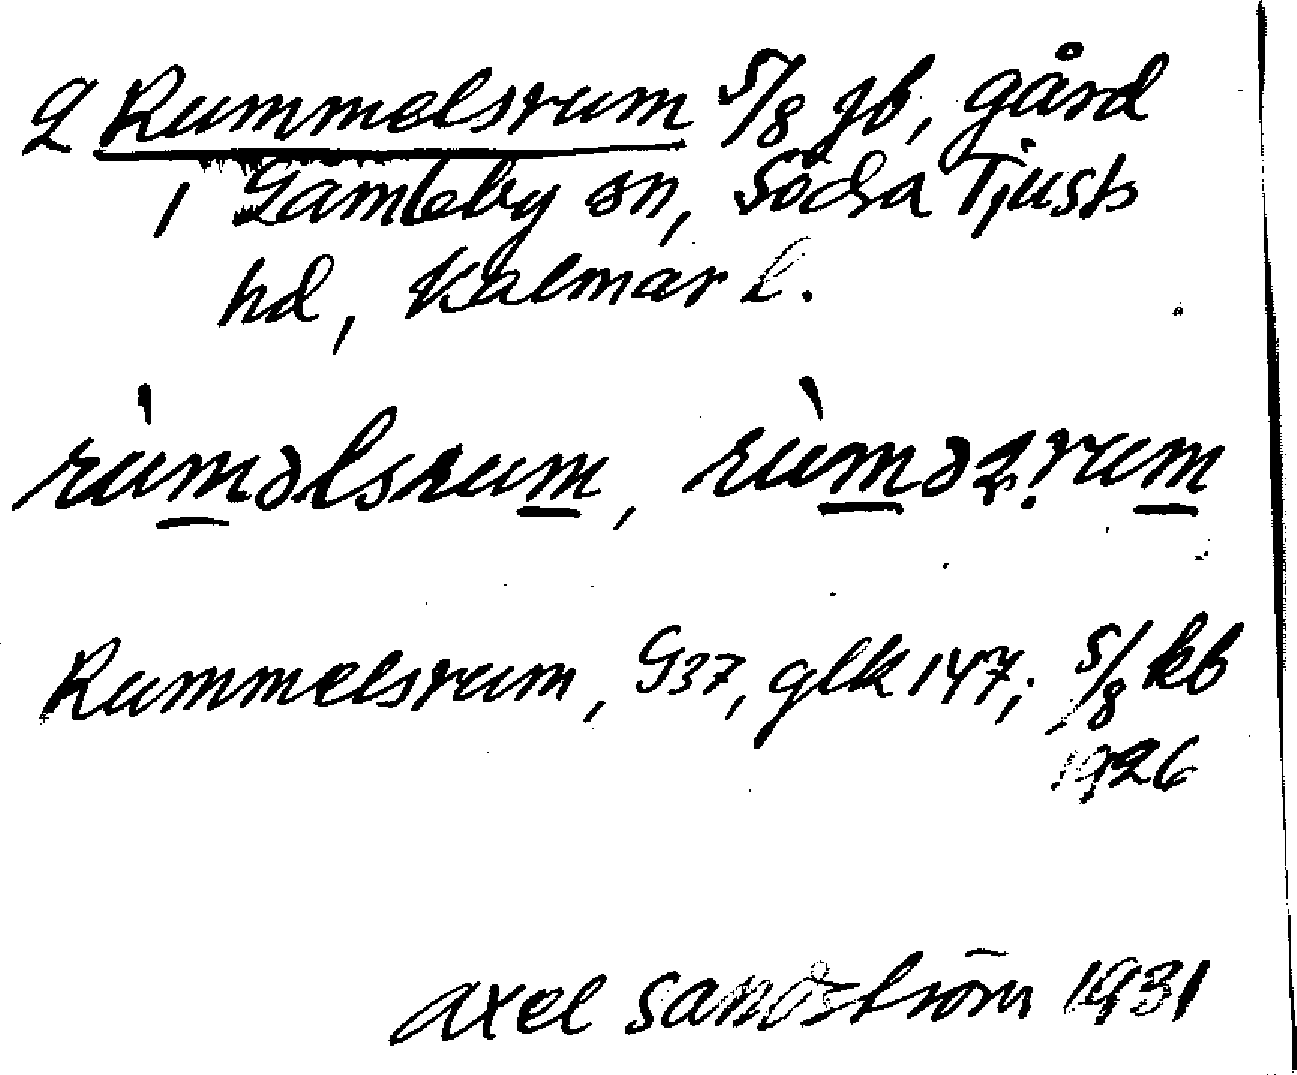 2 Rummelsrum 5/8 jb, gård
i Gamleby sn, Södra Tjusts
hd, Kalmar l.
rùməlsrum, rùməʂ.rum
Rummelsrum, G37, glk 147; 5/8 kb
1926
Axel Sandström 1931